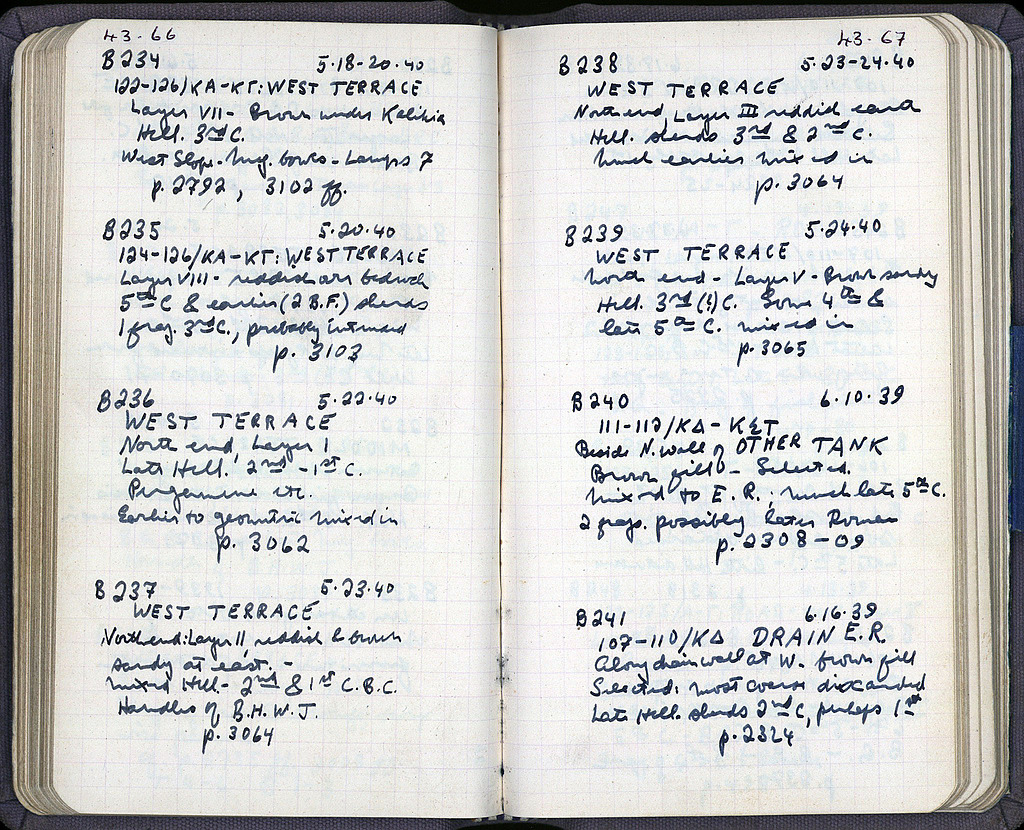 43-66
B234 5-18-20-40
122-126/ΚΑ-ΚΓ: WEST TERRACE
Layer VII - Brown under
Hell. 3rd C.
West Slope. Meg. bowls - Lamps 7
p. 2792, 3102 ff.
B235 5-20-40
124-126/ΚΑ-ΚΓ: WEST TERRACE
Layer VIII - reddish over bedrock
5th C & earlier (2 B.F.) sherds
1 frag. 3rd C., probably intrused
p. 3103
B236 5-22-40
WEST TERRACE
North end, Layer I
Late Hell. 2nd - 1st C.
Pergamene etc.
Earlier to geometric mixed in
p. 3062
B237 5-23-40
WEST TERRACE
North end: Layer II, reddish & brown
sandy at east. -
mixed Hell - 2nd & 1st C. B.C.
Handles of B.H.W.J.
p. 3064
43-67
B238 5-23-24-40
WEST TERRACE
North end, Layer III reddish earth
Hell. sherds 3rd & 2nd C.
Much earlier mixed in
p. 3064
B239 5-24-40
WEST TERRACE
North end - Layer V - Brown sandy
Hell. 3rd (!) C. Some 4th &
late 5th C. mixed in
p. 3065
B240 6-10-39
111-112/ΚΔ-
Beside N. wall of OTHER TANK
Brown fill - Selected.
Mixed to E.R.; much late 5th C.
2 frags. possibly later Roman
p. 2308-09
B241 6-16-39
107-110/ΚΔ DRAIN E.R.
Along drain wall at W. brown fill
Selected: most coarse discarded
Late Hell. sherds 2nd C, perhaps 1st
p. 2324